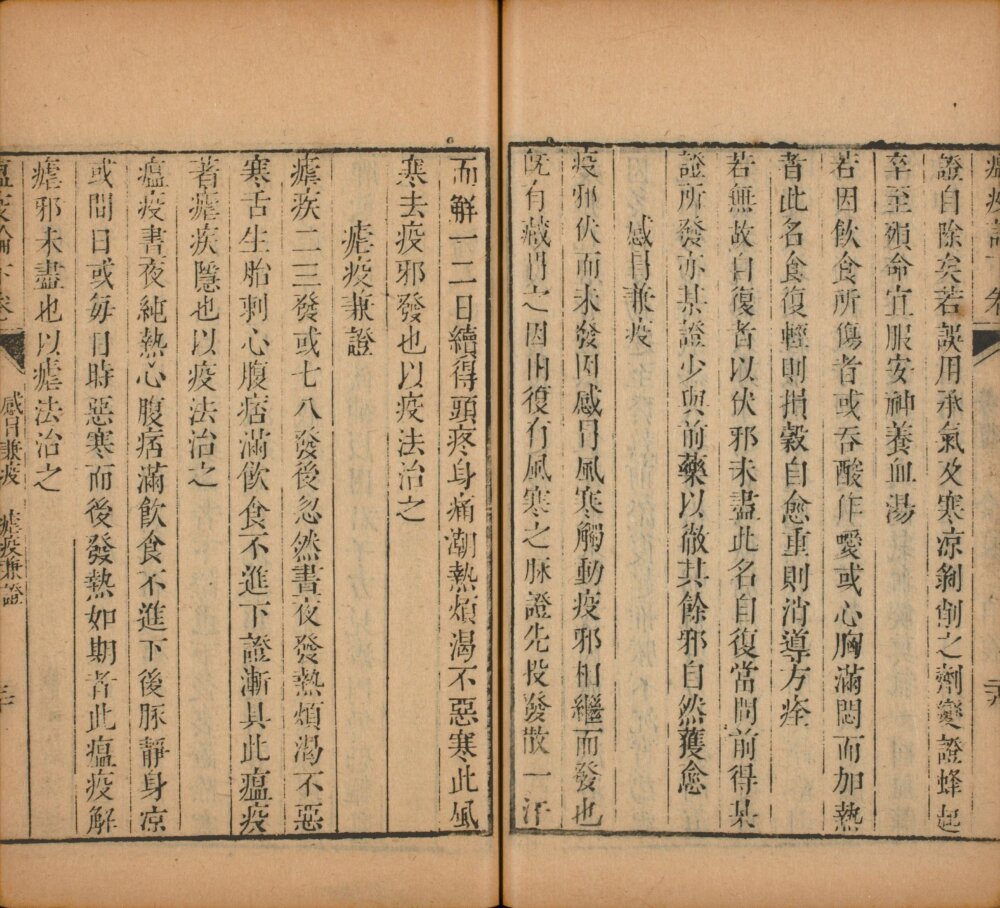 證自除矣若誤用承氣及寒凉剝削之劑變證蜂起
卒至殞命宜服安神養血湯
若因飲食所傷者或吞酸作噯或心胸滿悶而加熱
者此名食復輕則損穀自愈重則消導方痊
若無故自復者以伏邪未盡此名自復當問前得某
證所發亦某證少與前藥以徹其餘邪自然獲愈
感冒兼疫
疫邪伏而未發因感冒風寒觸動疫邪相繼而發也
既有感冒之因由復有風寒之脉證先投發散一汗
而解一二日續得頭疼身痛潮熱煩渴不惡寒此風
寒去疫邪發也以疫法治之
瘧疫兼證
瘧疾二三發或七八發後忽然晝夜發熱煩渴不惡
寒舌生胎刺心腹痞滿飲食不進下證漸具此瘟疫
著瘧疾隱也以疫法治之
瘟疫晝夜純熱心腹痞滿飲食不進下後脉靜身凉
或間日或每日時惡寒而後發熱如期者此瘟疫解
瘧邪未盡也以瘧法治之
瘟疫論下卷
感冒兼疫 瘧疫兼證